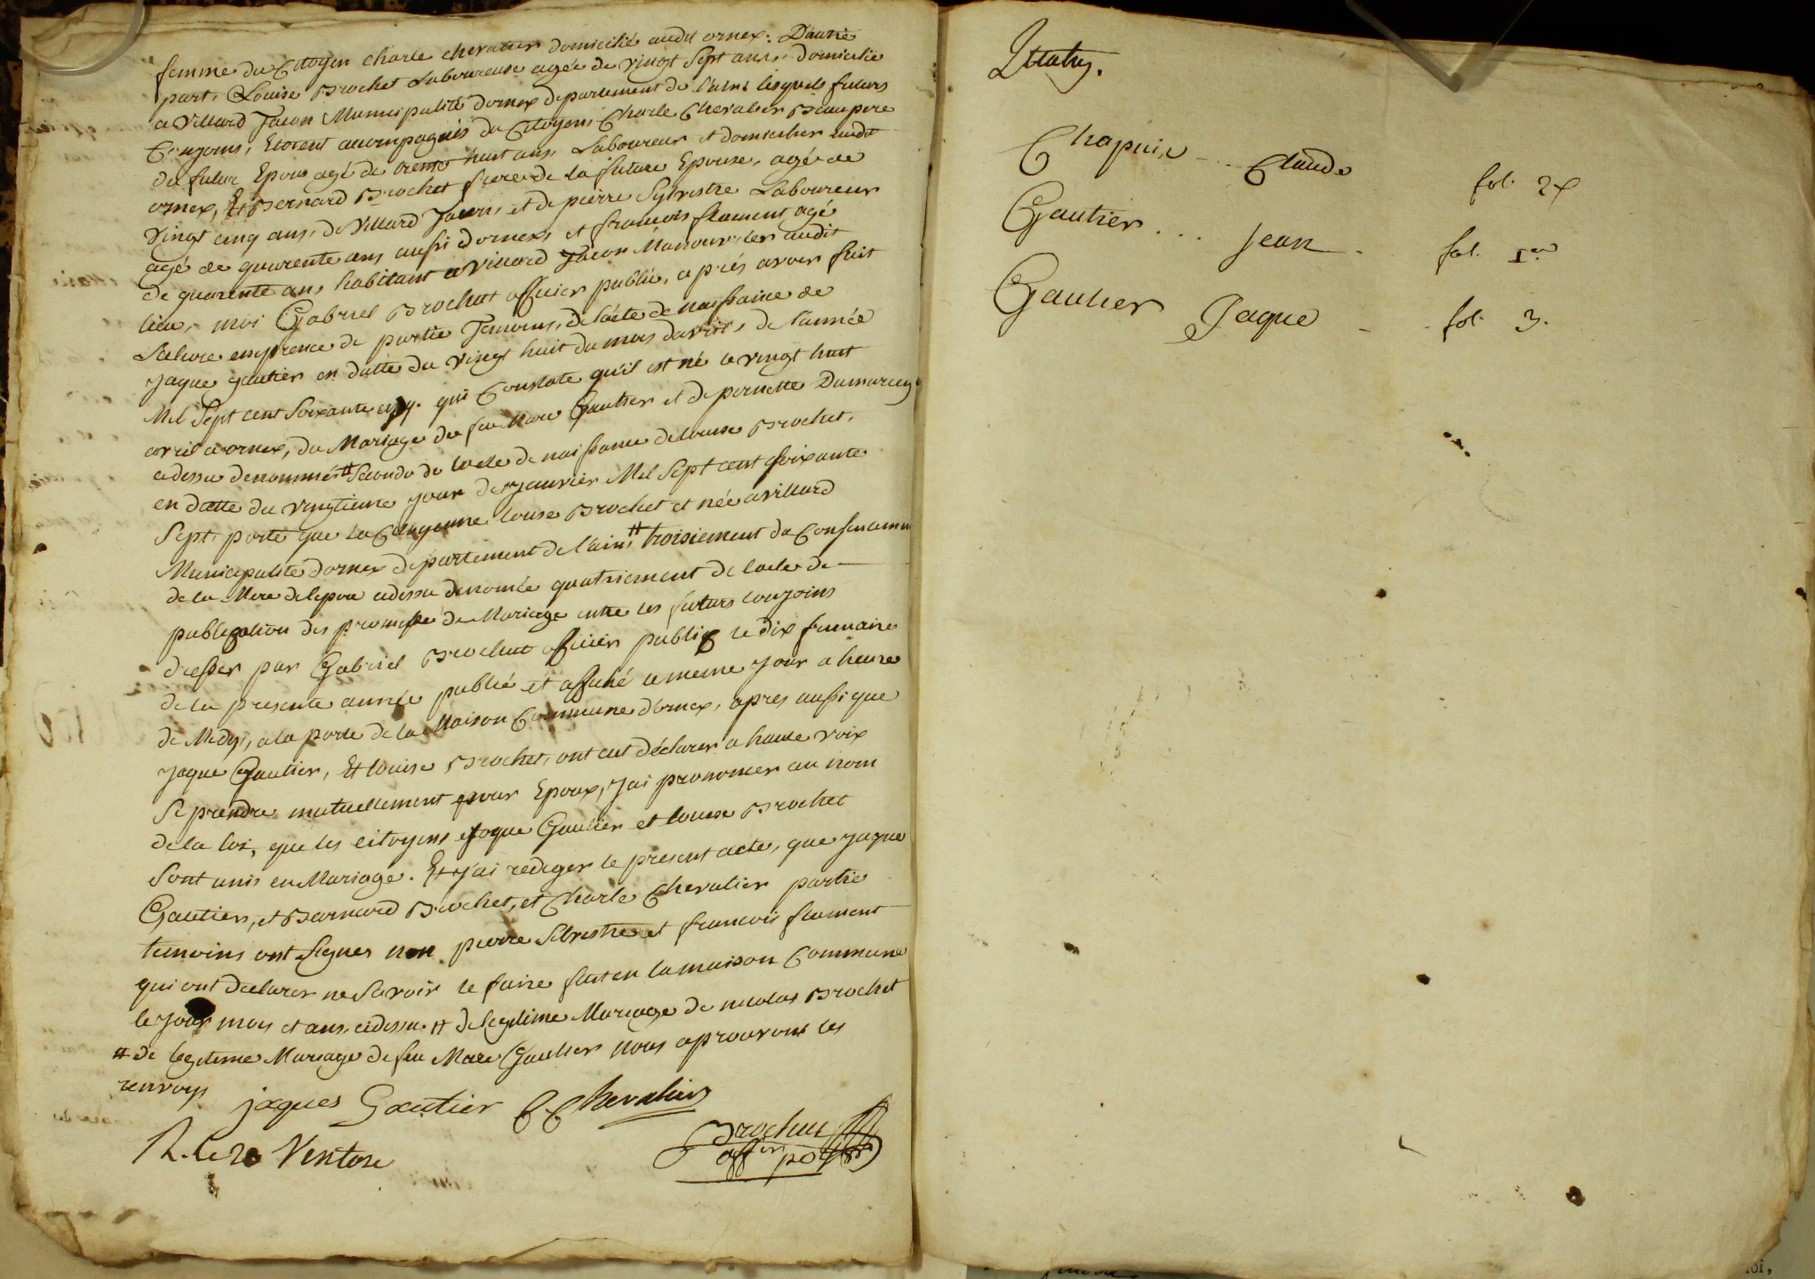 femme du Citoyen charle chevalier domicilié audit ornex. Dautre
part, Louise Brochet Laboureuse agée de vingt Sept ans, domicilie
a Villard Tacon Municipalité dornex departement de l'ain lesquels futurs
Conjoins, Etoient accompagnés du Citoyen Charle Chevalier Beaupere
du futur Epoux agé de trente huit ans, Laboureur et domicilier audit
ornex, Et Bernard Brochet frere de la future Epouse, agé de
Vingt cinq ans, de Villard Tacon, et de pierre Sylvestre Laboureur
agé de quarente ans aussi dornex, et francois flament agé
de quarente ans habitant a Villard Tacon Manouvrier audit
lieu, moi Gabriel Brochut officier public, apriés avoir fait
Lecture en presence de partie Temoins, de l'acte de naissance de
Jaque gautier en datte du Vingt huit du mois davril, de l'année
Mil Sept cent Soixante cinq. qui Constate qu'il est né le vingt huit
avril a ornex, du Mariage de feu Marc Gautier et de pernette Dumarcey
cidessu denommé # Secondo de lacte de naissance de louise Brochet,
en datte du vingtieme jour de Janvier Mil Sept cent Soixante
Sept, porte que la Citoyenne louise Brochet et née a villard
Municipalité dornex departement de l'ain, # troisiement du Consentement
de la Mere de lepoux cidessu denomée quatriement de lacte de
publication des promesse de Mariage entre les futurs conjoins
dresser par Gabriel Brochut officier public le dix frimaire
de la presente année publié et affiché le meme jour a heure
de Midy, a la porte de la Maison Commune d'ornex, apres aussi que
Jaque Gautier, Et louise Brochet, ont eut déclarer a haute voix
Se prendre mutuellement pour Epoux, J'ai prononcer au nom
de la loi, que les citoyens Jaque Gautier et louise Brochet
Sont unis en Mariage. Et J'ai rediger le present acte, que Jaque
Gautier, et Barnard Brochet, et Charle Chevalier partie
temoins ont Signer non pierre Silvestre et francois flament
qui ont declarer ne Savoir le faire fait en la maison Commune
le jour mois et ans cidessu # de Legitime Mariage de nicolas Brochet
# de legiteme Mariage de feu Marc Gautier nous aprouvons les
renvoys
jaques Gautier C Chevalier
Brochut
off. p.
Ittaty.
Chapuis .. Claude fol. 2
Gautier ... Jean - fol. 1er
Gautier Jaque - fol. 3.